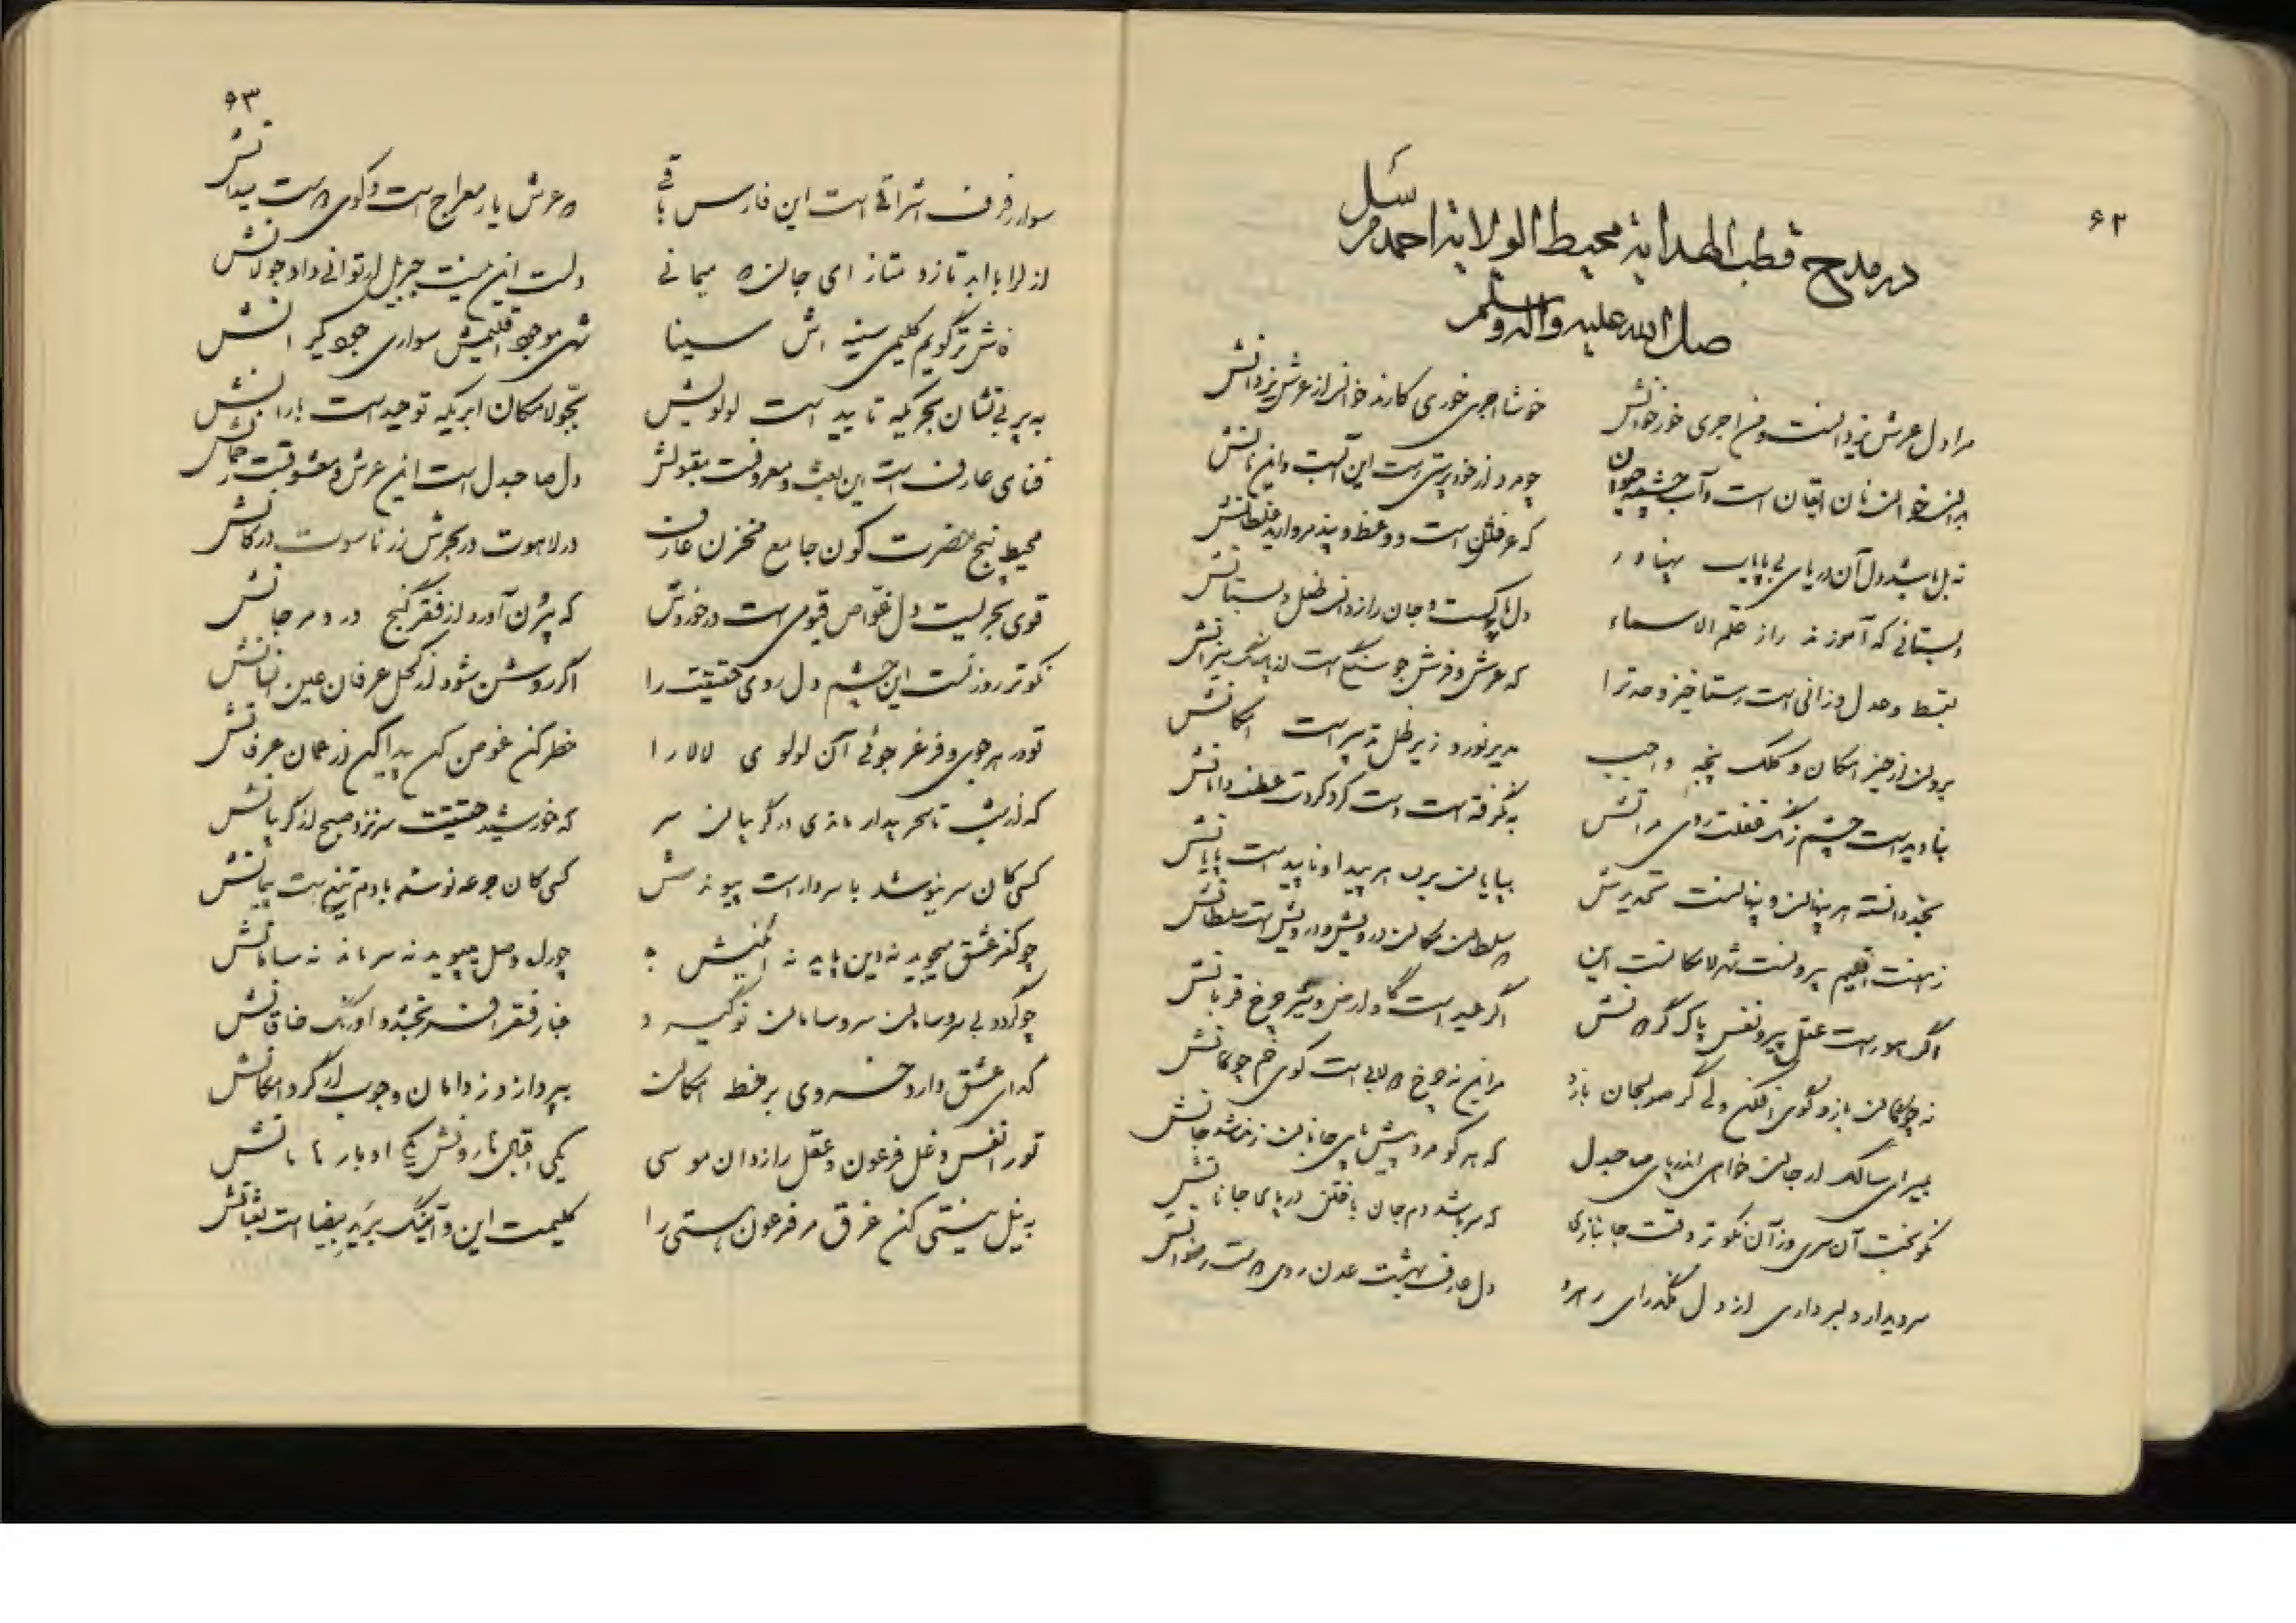 ۶۲
در مدح قطب الهدایة محیط الولایة احمد مرسل
صل الله علیه و اله و سلم
مرا دل عرش یزدانست و من اجری خور خوانش
خوشا اجری خوری کارند خوان از عرش یزدانش
بران خوان نان ایقان است و آب چشمه حیوان
چو مرد از خودپرستی رست این آبست و این نانش
نه دل باشد دل آن دریای بی پایاب پهناور
که عرفانش است در و عظ و پند مروارید غلطانش
دبستانی که آموزند راز علم الاسماء
دل پاکست و جان رازدان طفل دبستانش
بقسط و عدل وزانی است رستاخیز وحدت را
که عرش و فرش جو سنگ است از میزانش
برون از حیز امکان و کلک پنجه واجب
مدیر نور و زیر ظل تدبیر است امکانش
بنادید است چشم زنگ غفلت روی مرآتش
نگرفته است دست گرد کردت عطف دامانش
بخود دانسته هر پنهان و پنهانست تحدیدش
بپایان برده هر پیدا و ناپید است پایانش
ز هفت اقلیم بیرونست شهر لامکانست این
سلطان مکان درویش و درویش است سلطانش
اگر هور است عقل پیر و نفس پاک گردانش
اگر عید است گاو ارض و شیر چرخ قربانش
نه چوگان بازد و گوی افکند ولی گر صولجان بازد
مر این نه چرخ دولابی است گوی خم چوگانش
بمیر ای سالک ار جان خواهی اندر پای صاحبدل
که هر کو مرد پیش پای جانان زنده شد جانش
نکو بخت آن سری وز آن نکوتر وقت جانبازی
که سر باشد دم جان باختن در پای جانانش
سر دیدار دلبر داری از دل مگذر ای رهرو
دل عارف بهشت عدن و روی است رضوانش
۶۳
سوار رفرف اشراقی است این فارس باقی
عرش یار معراج است و گوی است میدانش
از ازل تا ابد تازد متاز ای جان میمانی
دلست این نیست جبریل ار توانی داد جولانش
فاش تر گویم کلیمی سینه اش سینا
شهی موجود اقلیمش سواری جود یکرانش
به پر بی نشان بحریکه تایید است لولویش
بجو لامکان ابریکه توحید است بارانش
فنای عارف است این بعث و معروفست بقبولش
دل صاحبدل است این عرش و معشوقست رحمانش
محیط پنج حضرت کون جامع مخزن عارف
در لاهوت در بحرش زر ناسوت در کانش
قوی بحریست دل غواص قیومی است در خوردش
که بیرن آورد از فقر گنج در و مرجانش
نکوتر روزنست این چشم دل روی حقیقت را
اگر روشن شود از کحل عرفان عین انسانش
تو در هر جوی و فرغر جوئی آن لولوی لالا را
خطر کن غوص کن پیدا کن از عمان عرفانش
که از شب تا سحر بیدار ماندی در گریبان سر
که خورشید حقیقت سر نزد صبح از گریبانش
کسی کان سر نیوشد با سر دار است پیوندش
کسی کان جرعه نوشد با دم تیغ است پیمانش
چو کفر عشق میجوید نه دین باید نه آئینش
چو دل وصل میپوید نه سر ماند نه سامانش
چو گردد بی سر و سامان سر و سامان نو گیرد
غبار فقر افسر بخشد و اورنگ خاقانش
گدای عشق دارد خسروی بر خطه امکان
بپردازد ز دامان وجوب ار گرد امکانش
تو را نفس دغل فرعون و عقل رازدان موسی
یکی اقبال هارونش یکی ادبار هامانش
به نیل نیستی کن غرق مر فرعون هستی را
کلیمت این و آنینک ید بیضا است ثعبانش